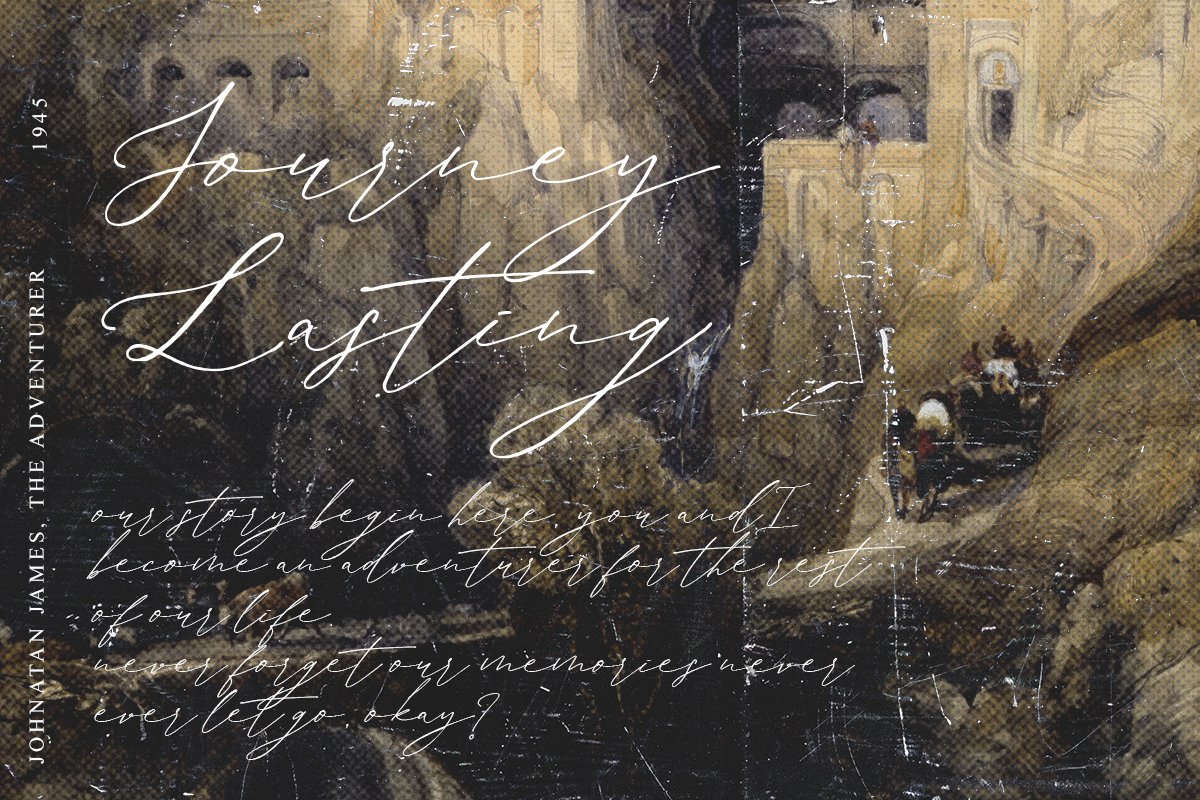 Journey
Lasting
our story begin here, you and I
become an adventurer for the rest
of our life.
never forget our memories never
ever let go, okay?
JOHNATAN JAMES, THE ADVENTURER 1945